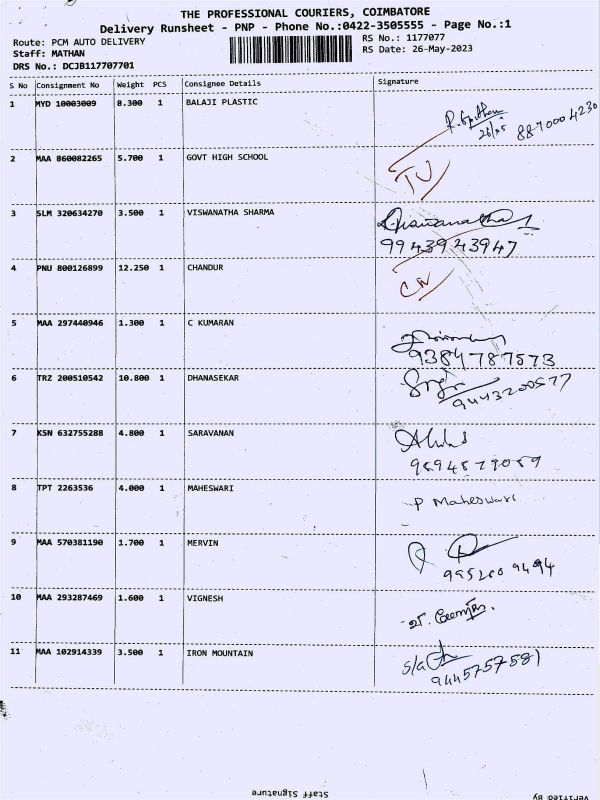 THE PROFESSIONAL COURIERS, COIMBATORE
Delivery Runsheet - PNP - Phone No.:0422-3505555 - Page No.:1
Route: PCM AUTO DELIVERY RS No.: 1177077
Staff: MATHAN RS Date: 26-May-2023
DRS No.: DCJB117707701
S No Consignment No Weight PCS Consignee Details Signature
1 MYD 10003009 8.300 1 BALAJI PLASTIC
26/05 8870004230
2 MAA 860082265 5.700 1 GOVT HIGH SCHOOL
3 SLM 320634270 3.500 1 VISWANATHA SHARMA
9943943947
4 PNU 800126899 12.250 1 CHANDUR
5 MAA 297440946 1.300 1 C KUMARAN
9384787573
6 TRZ 200510542 10.800 1 DHANASEKAR
9443200577
7 KSN 632755288 4.800 1 SARAVANAN
8 TPT 2263536 4.000 1 MAHESWARI P Maheswari
9 MAA 570381190 1.700 1 MERVIN
10 MAA 293287469 1.600 1 VIGNESH
11 MAA 102914339 3.500 1 IRON MOUNTAIN
9445757581
Staff Signature Verified By